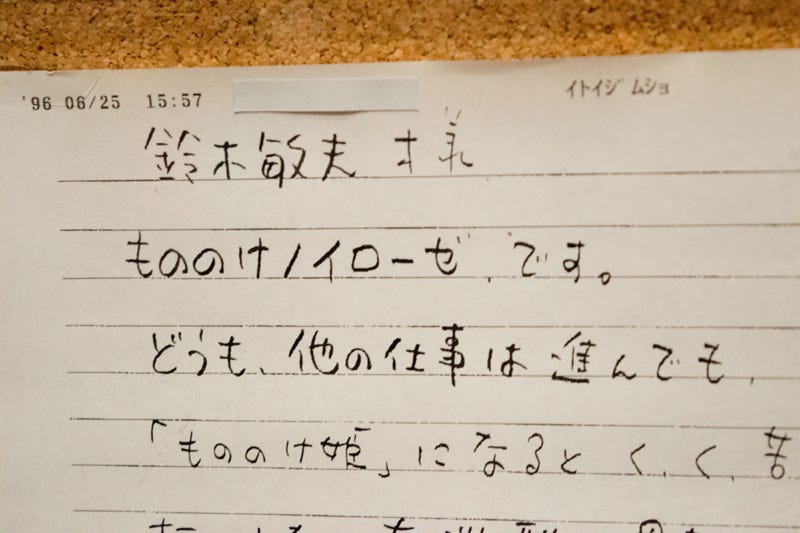 '96 06/25 15:57 イトイジムショ
鈴木敏夫 様
もののけノイローゼ、です。
どうも、他の仕事は進んでも、
「もののけ姫」になるとく、く、苦